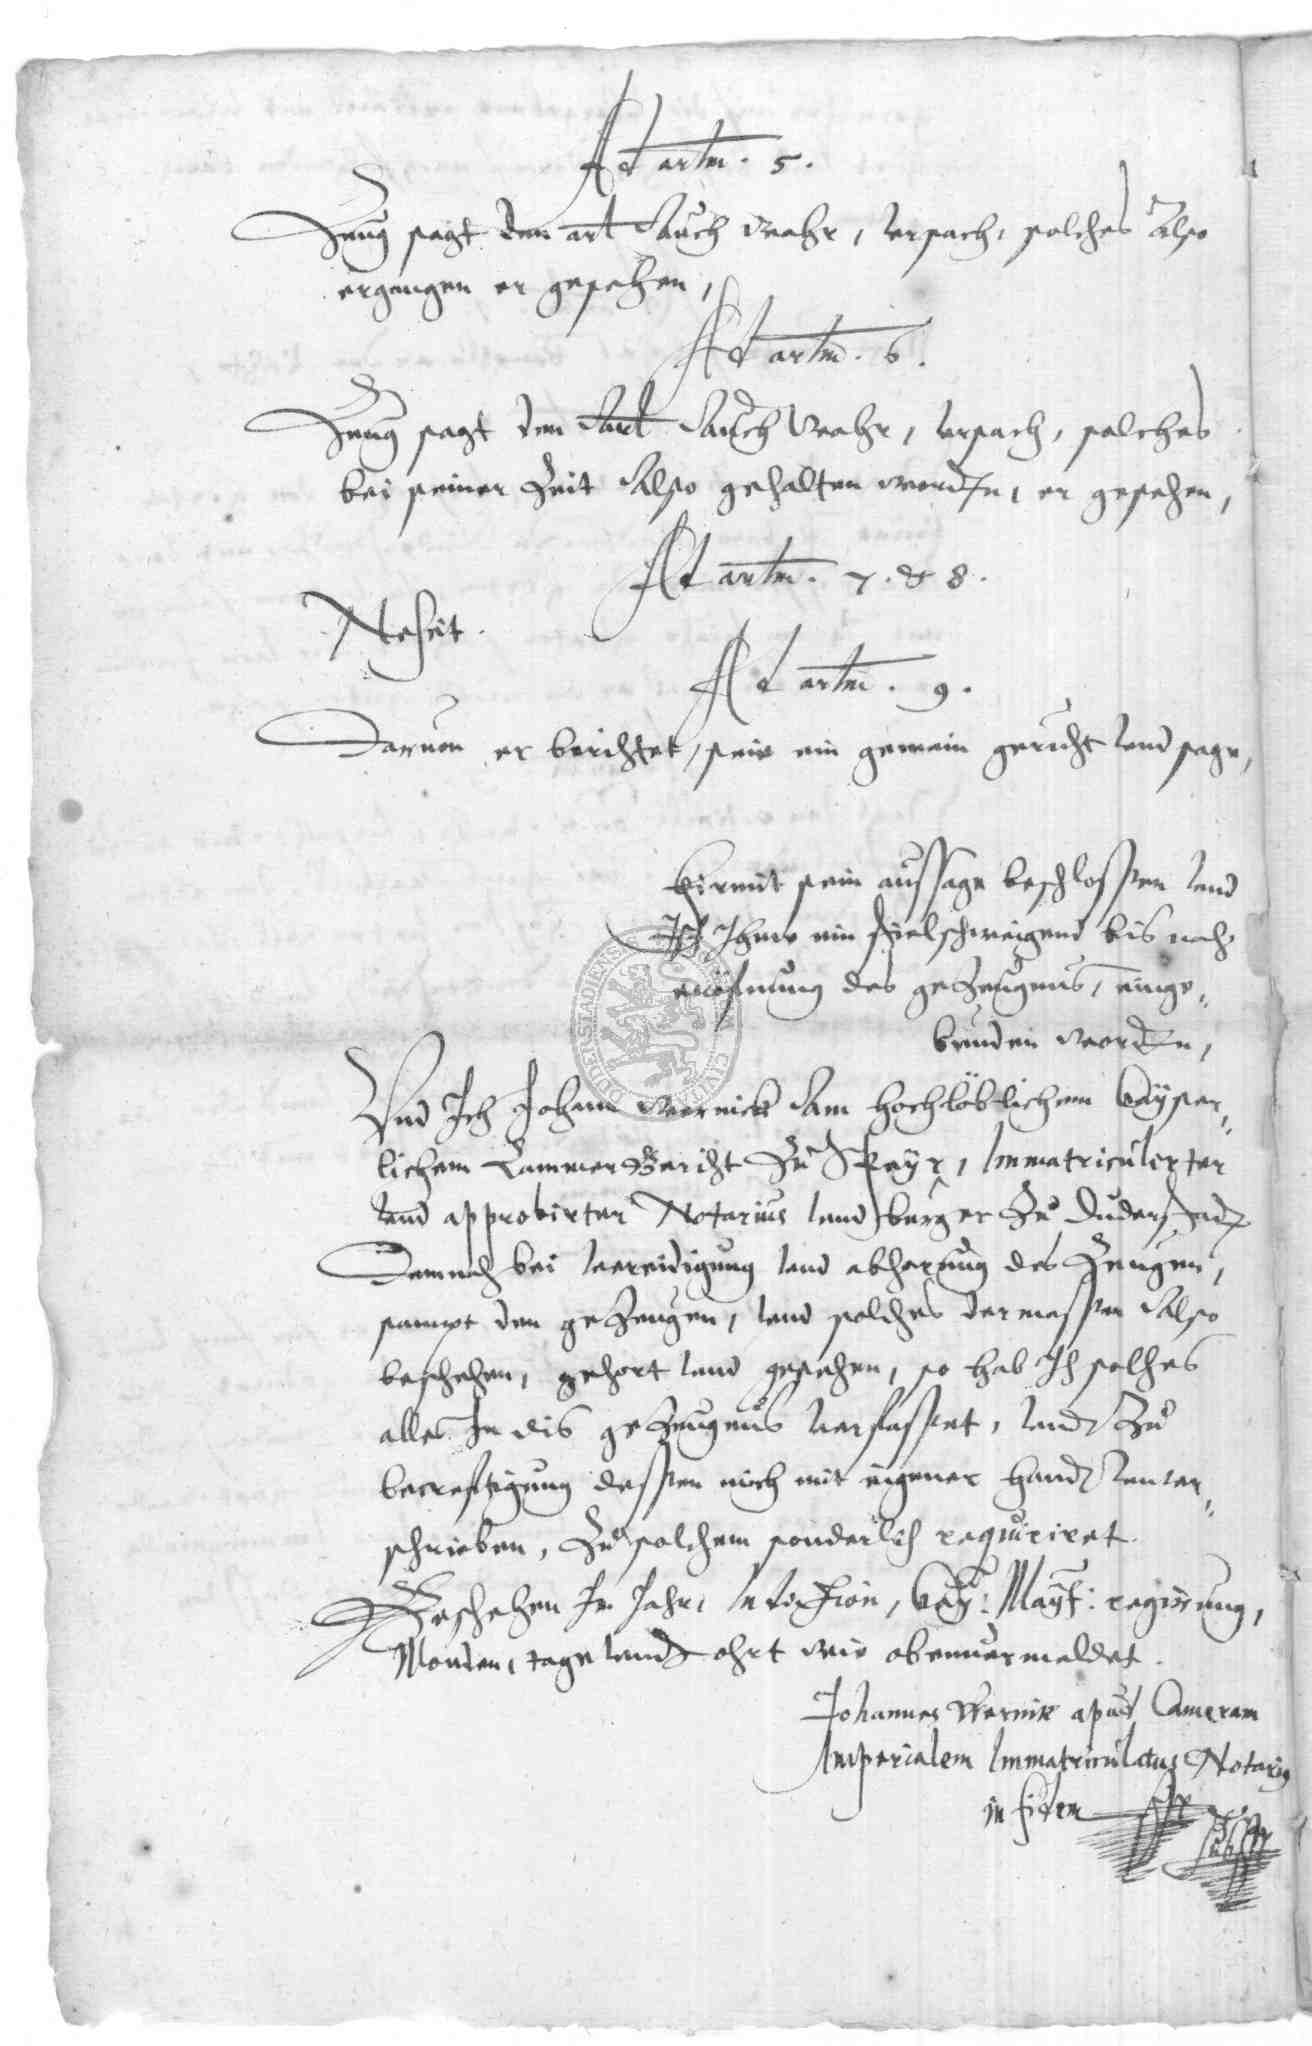 Ad artm. 5.
Zeug sagt den art auch waahr, ursach, solches also
ergangen er gesehen,
Ad artm. 6.
Zeug sagt den art auch waahr, ursach, solches
bei seiner Zeit also gehalten worden, er gesehen,
Ad artm. 7. & 8.
Nescit.
Ad artm. 9.
Daruon er berichtet, seie ein gemein gerücht und sage,
Hirmit sein aussage beschlossen und
Ist Ihme ein stielschweigend bis nach
eröfnung des gezeugnus, einge„
bunden worden,
Und Ich Johan Wernick am hochlöblichem Kayser„
lichem Cammer Gericht zu Speyr, Immatriculirter
und approbirter Notarius und burger zu Duderstadt
Demnach bei vereidigung und abhorung des Zeugen,
sampt den gezeugen, und solches dermassen also
beschehen, gehort und gesehen, so hab Ich solches
alles In dis gezeugnus verfasset, und zu
becreftigung dessen mich mit eigener handt unter„
schrieben, zu solchem sonderlich requirirt.
Geschehen Im Jahr, Indiction, Kay: Mayt: regirung,
Monden, tage und ohrt wie obenuermeldet.
Johannes Wernik apud Cameram
Imperialem Immatriculatus Notarius
in fidem sst
subsst